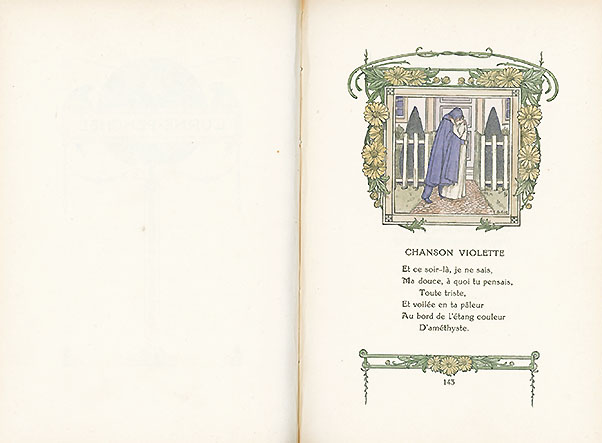 CHANSON VIOLETTE
Et ce soir-là, je ne sais,
Ma douce, à quoi tu pensais,
Toute triste,
Et voilée en ta pâleur
Au bord de l'étang couleur
D'améthyste.
143